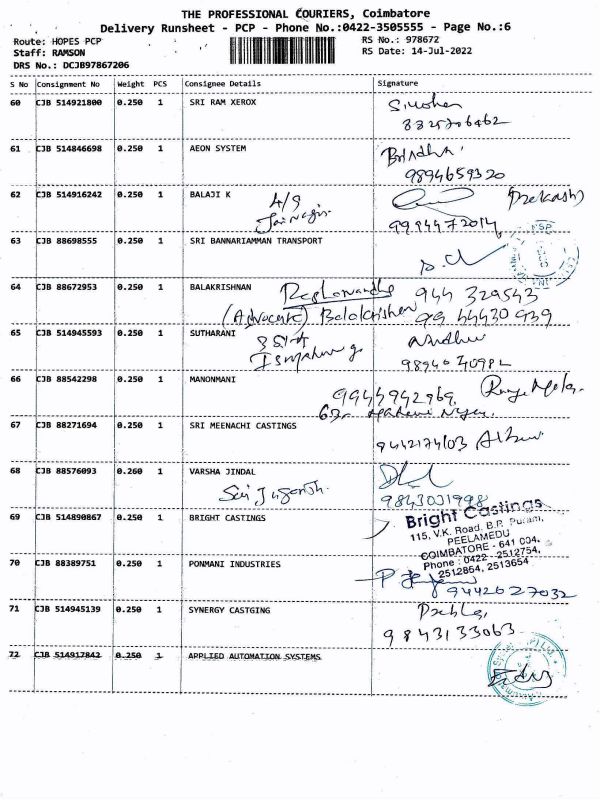 THE PROFESSIONAL COURIERS, Coimbatore
Delivery Runsheet - PCP - Phone No.:0422-3505555 - Page No.:6
Route: HOPES PCP
RS No.: 978672
Staff: RAMSON
RS Date: 14-Jul-2022
DRS No.: DCJB97867206
S No Consignment No Weight PCS Consignee Details Signature
60 CJB 514921800 0.250 1 SRI RAM XEROX
61 CJB 514846698 0.250 1 AEON SYSTEM
9894659320
62 CJB 514916242 0.250 1 BALAJI K 4/9 Prakash
9994472014
63 CJB 88698555 0.250 1 SRI BANNARIAMMAN TRANSPORT
64 CJB 88672953 0.250 1 BALAKRISHNAN
(Advocate) Balakrishnan
65 CJB 514945593 0.250 1 SUTHARANI
66 CJB 88542298 0.250 1 MANONMANI
9944942969
67 CJB 88271694 0.250 1 SRI MEENACHI CASTINGS
9442174103
68 CJB 88576093 0.260 1 VARSHA JINDAL
9843031998
69 CJB 514890867 0.250 1 BRIGHT CASTINGS
Bright Castings
115, V.K. Road, B.R. Puram,
PEELAMEDU
COIMBATORE - 641 004.
Phone : 0422 - 2512754,
2512864, 2513654
70 CJB 88389751 0.250 1 PONMANI INDUSTRIES
9442627032
71 CJB 514945139 0.250 1 SYNERGY CASTGING
9843133063
72 CJB 514917842 0.250 1 APPLIED AUTOMATION SYSTEMS